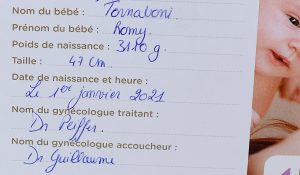 Nom du bébé : Tornaboni
Prénom du bébé : Romy
Poids de naissance : 3110 g
Taille : 47 Cm.
Date de naissance et heure :
Le 1er janvier 2021
Nom du gynécologue traitant :
Dr Peiffer.
Nom du gynécologue accoucheur :
Dr Guillaume